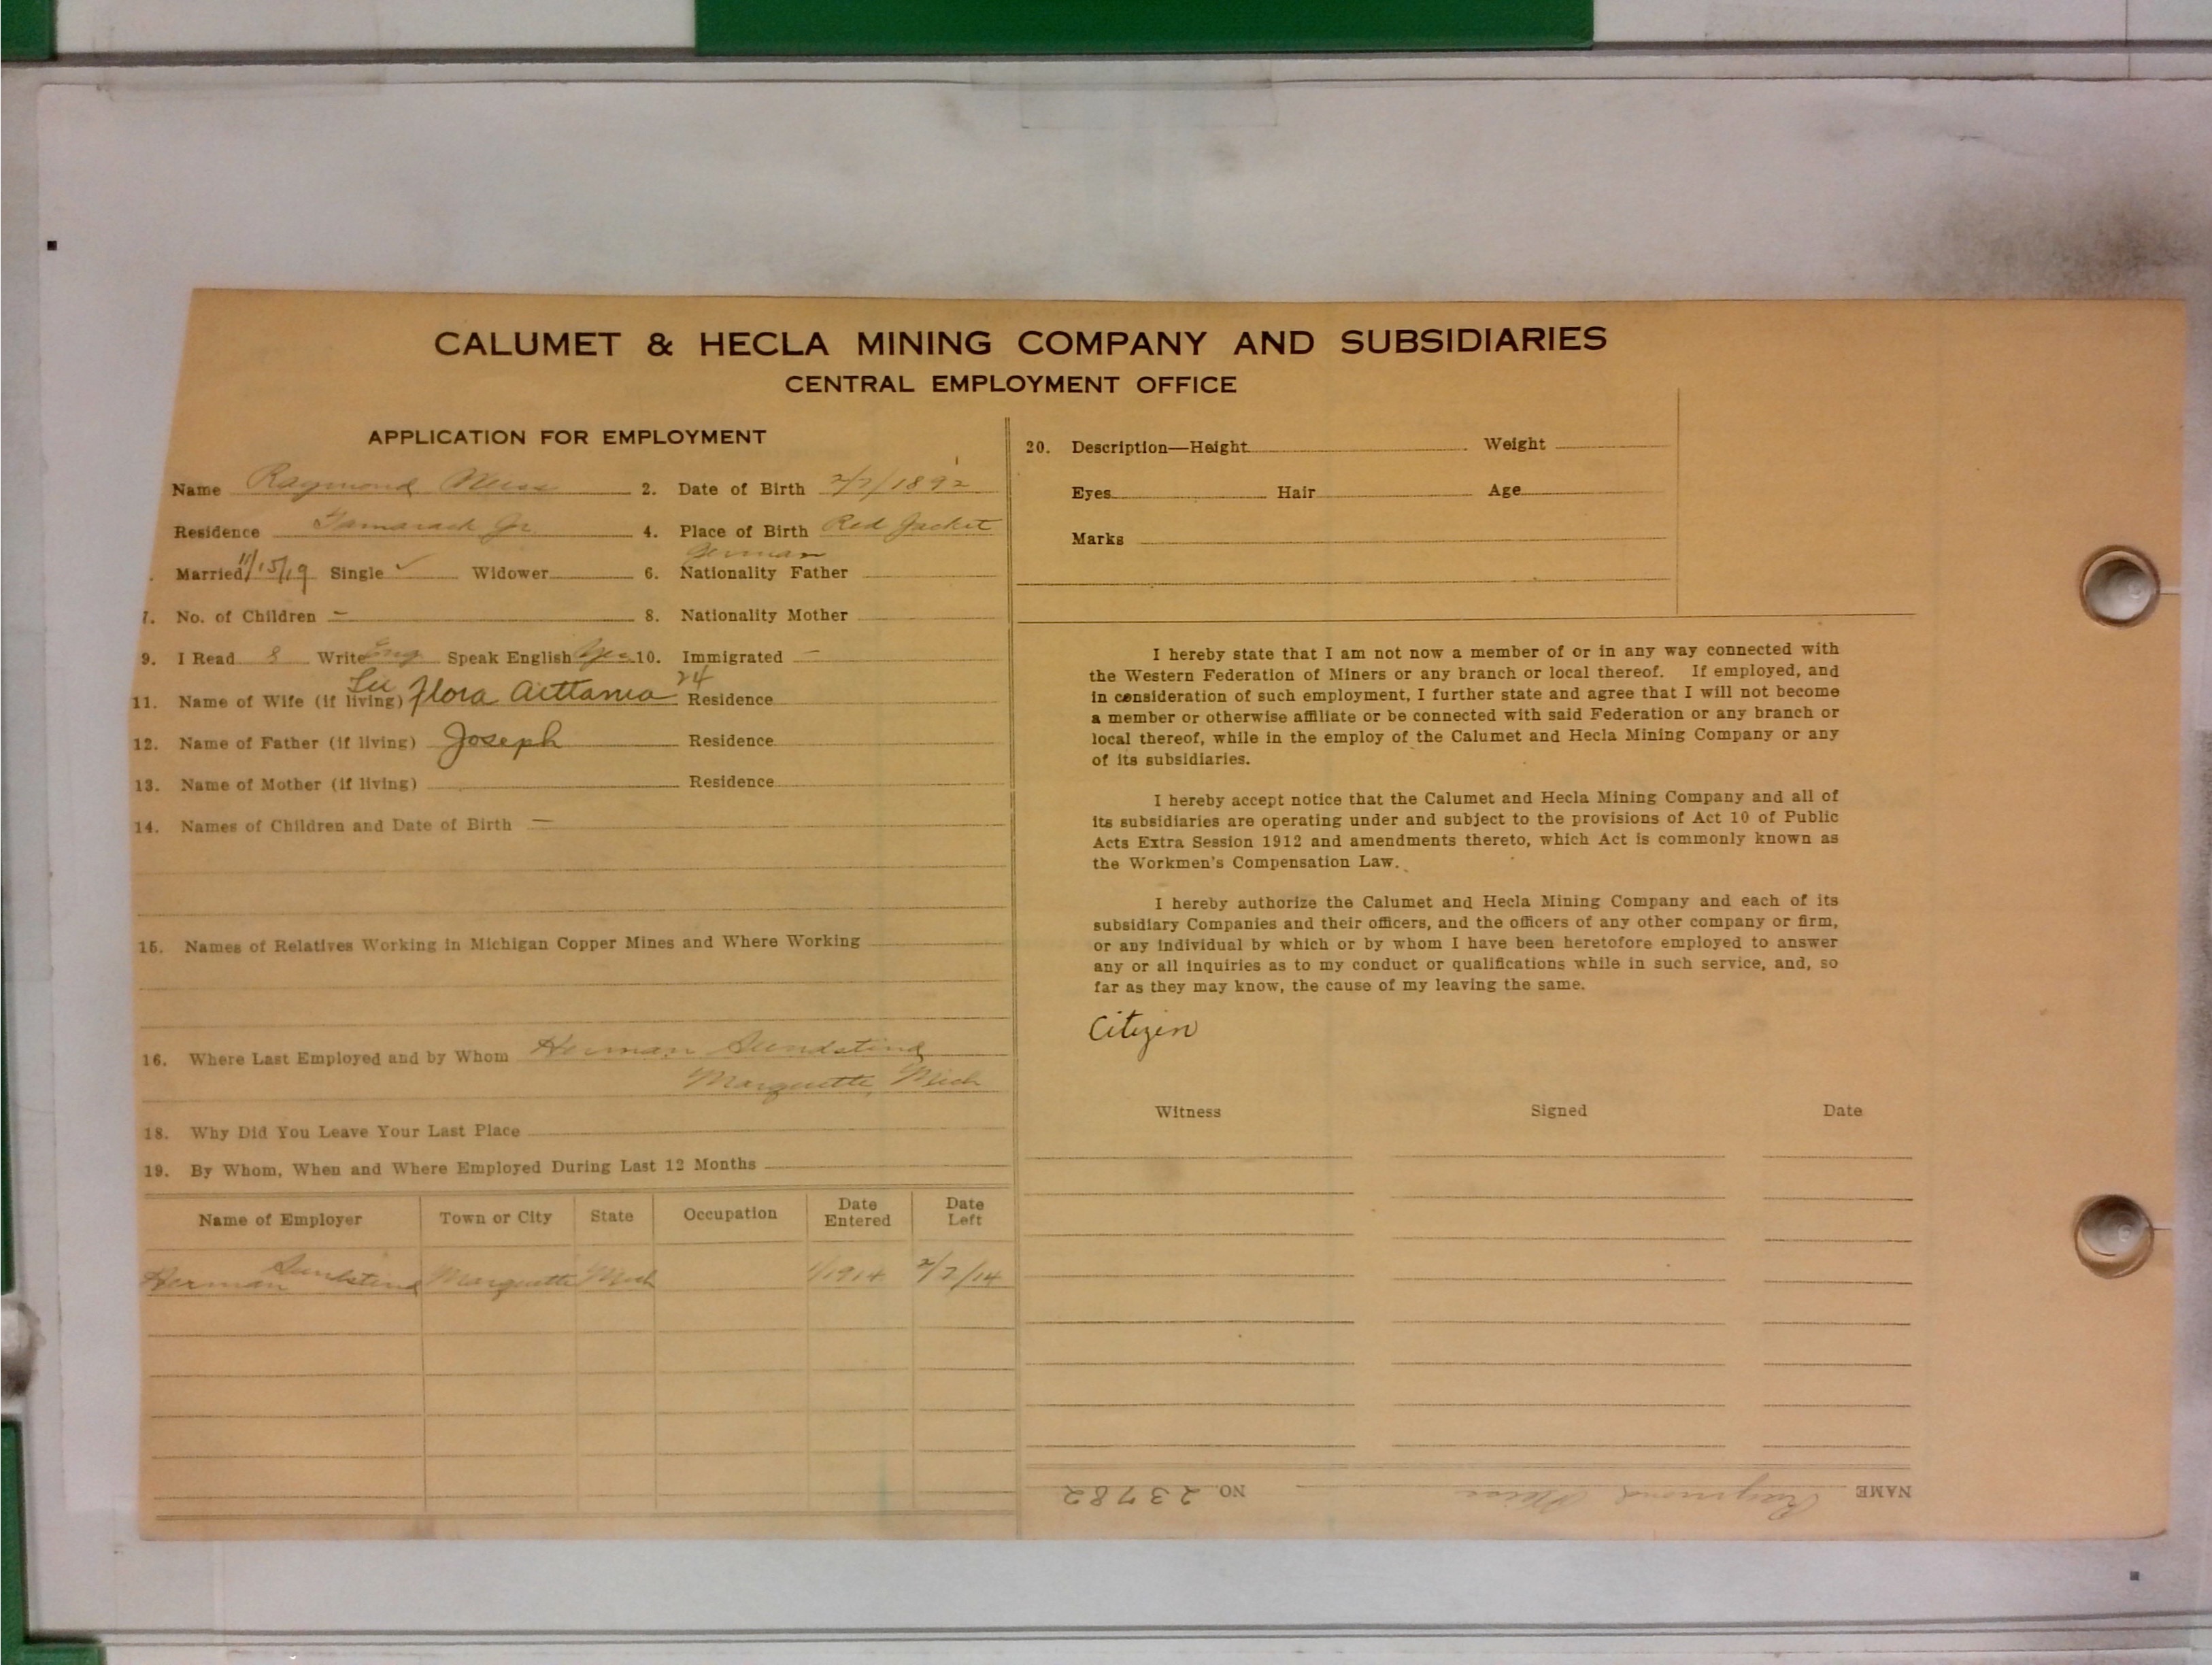 CALUMET & HECLA MINING COMPANY AND SUBSIDIARIES
CENTRAL EMPLOYMENT OFFICE
APPLICATION FOR EMPLOYMENT
Name Raymond
2. Date of Birth 2/7/1892
Residence Tamarack Jr.
4. Place of Birth Red Jacket
German
Married 11/15/19 Single ✓ Widower
6. Nationality Father
7. No. of Children –
8. Nationality Mother
9. I Read 8 Write Eng Speak English Yes
10. Immigrated –
11. Name of Wife (if living) Flora 24 Residence
12. Name of Father (if living) Joseph Residence
13. Name of Mother (if living) Residence
14. Names of Children and Date of Birth –
15. Names of Relatives Working in Michigan Copper Mines and Where Working
16. Where Last Employed and by Whom Herman
Marquette, Mich
18. Why Did You Leave Your Last Place
19. By Whom, When and Where Employed During Last 12 Months
Name of Employer Town or City State Occupation Date Entered Date Left
Herman Marquette Mich 1/1914 2/7/14
20. Description—Height Weight
Eyes Hair Age
Marks
I hereby state that I am not now a member of or in any way connected with
the Western Federation of Miners or any branch or local thereof. If employed, and
in consideration of such employment, I further state and agree that I will not become
a member or otherwise affiliate or be connected with said Federation or any branch or
local thereof, while in the employ of the Calumet and Hecla Mining Company or any
of its subsidiaries.
I hereby accept notice that the Calumet and Hecla Mining Company and all of
its subsidiaries are operating under and subject to the provisions of Act 10 of Public
Acts Extra Session 1912 and amendments thereto, which Act is commonly known as
the Workmen's Compensation Law.
I hereby authorize the Calumet and Hecla Mining Company and each of its
subsidiary Companies and their officers, and the officers of any other company or firm,
or any individual by which or by whom I have been heretofore employed to answer
any or all inquiries as to my conduct or qualifications while in such service, and, so
far as they may know, the cause of my leaving the same.
Citizen
Witness Signed Date
NAME Raymond NO. 23782